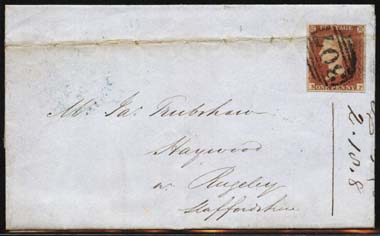 POSTAGE
ONE PENNY
Mr. Jas. Trubshaw
Haywood
nr. Rugeley
Staffordshire
2.10.8